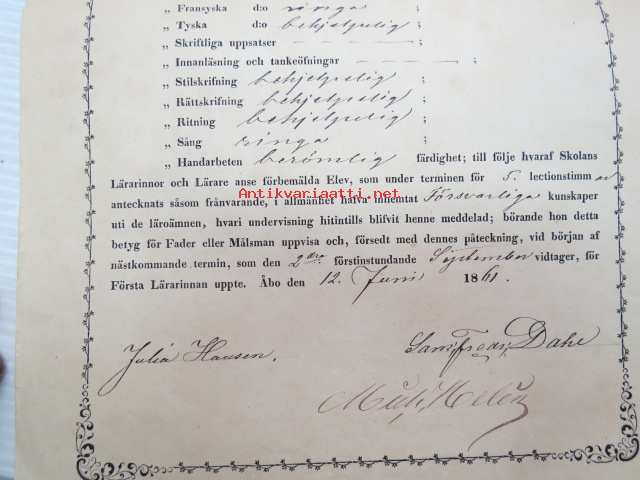 „ Fransyska d:o ringa ;
„ Tyska d:o behjelpelig ;
„ Skriftliga uppsatser — — — — ;
„ Innanläsning och tankeöfningar — — — — ;
„ Stilskrifning behjelpelig ;
„ Rättskrifning behjelpelig ;
„ Ritning behjelpelig ;
„ Sång ringa ;
„ Handarbeten berömlig färdighet; till följe hvaraf Skolans
Lärarinnor och Lärare anse förbemälda Elev, som under terminen för 5. lectionstimmar
antecknats såsom frånvarande, i allmänhet hafva inhemtat Försvarliga kunskaper
uti de läroämnen, hvari undervisning hitintills blifvit henne meddelad; börande hon detta
betyg för Fader eller Målsman uppvisa och, försedt med dennes påteckning, vid början af
nästkommande termin, som den 2dra förstinstundande September vidtager, för
Första Lärarinnan uppte. Åbo den 12. Juni 1861.
Julia Hansen.
Dahl
Antikvariaatti.net